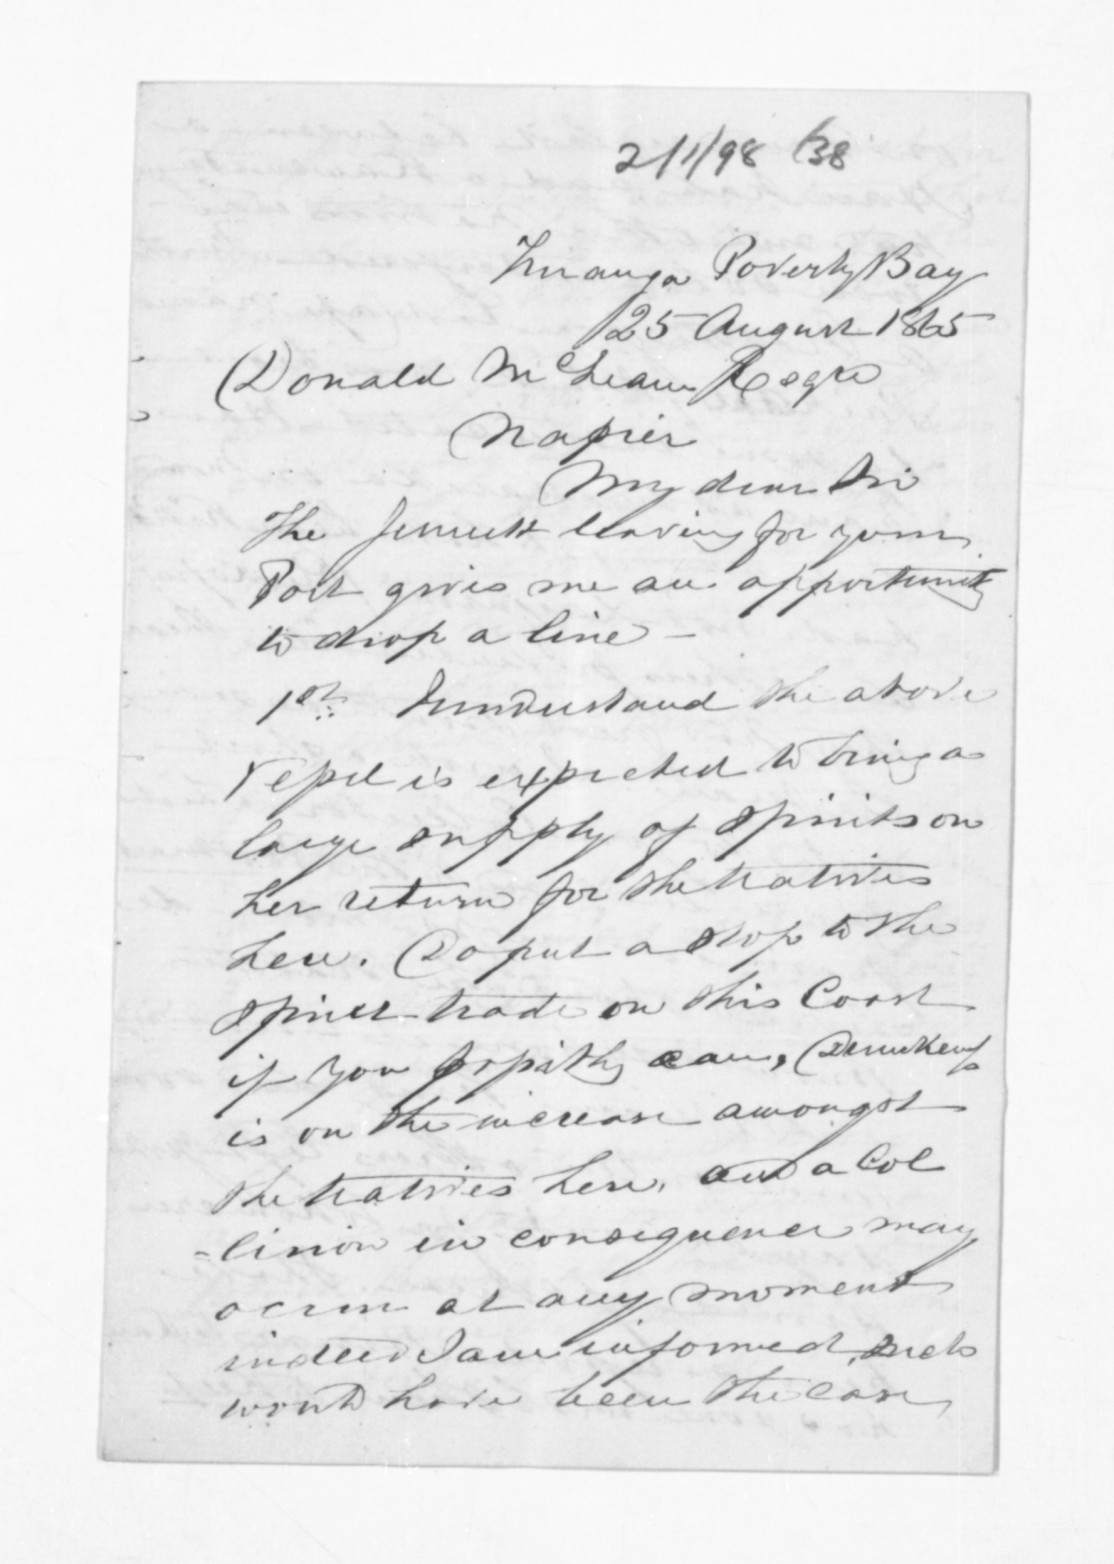 2/1/98 /38
Turanga Poverty Bay
25 August 1865
Donald McLean Esqre
Napier
My dear Sir
The leaving for your
Port gives me an opportunity
to drop a line -
1st. I understand the above
Vessel is expected to bring a
large supply of spirits on
her return for the Natives
here. Do put a stop to the
spirit trade on this Coast
if you possibly can, Drunkenss
is on the increase amongst
the Natives here, and a Col
-lision in consequence may
occur at any moment
indeed I am informed such
would have been the case